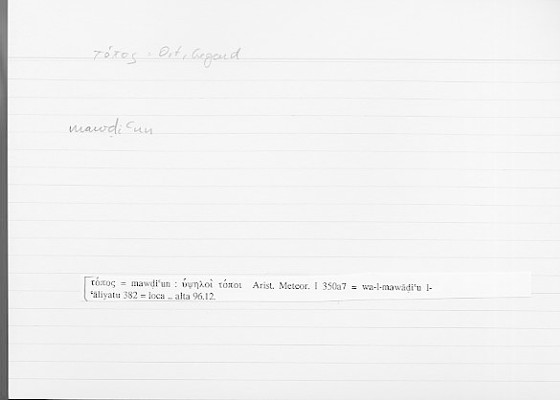 τόπος : Ort, Gegend
mawḍiʿun
τόπος = mawḍiʿun : ὑψηλοὶ τόποι Arist. Meteor. I 350a7 = wa-l-mawāḍiʿu l-
ʿāliyatu 382 = loca .. alta 96.12.